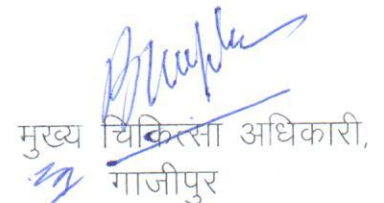 मुख्य चिकित्सा अधिकारी,
गाजीपुर